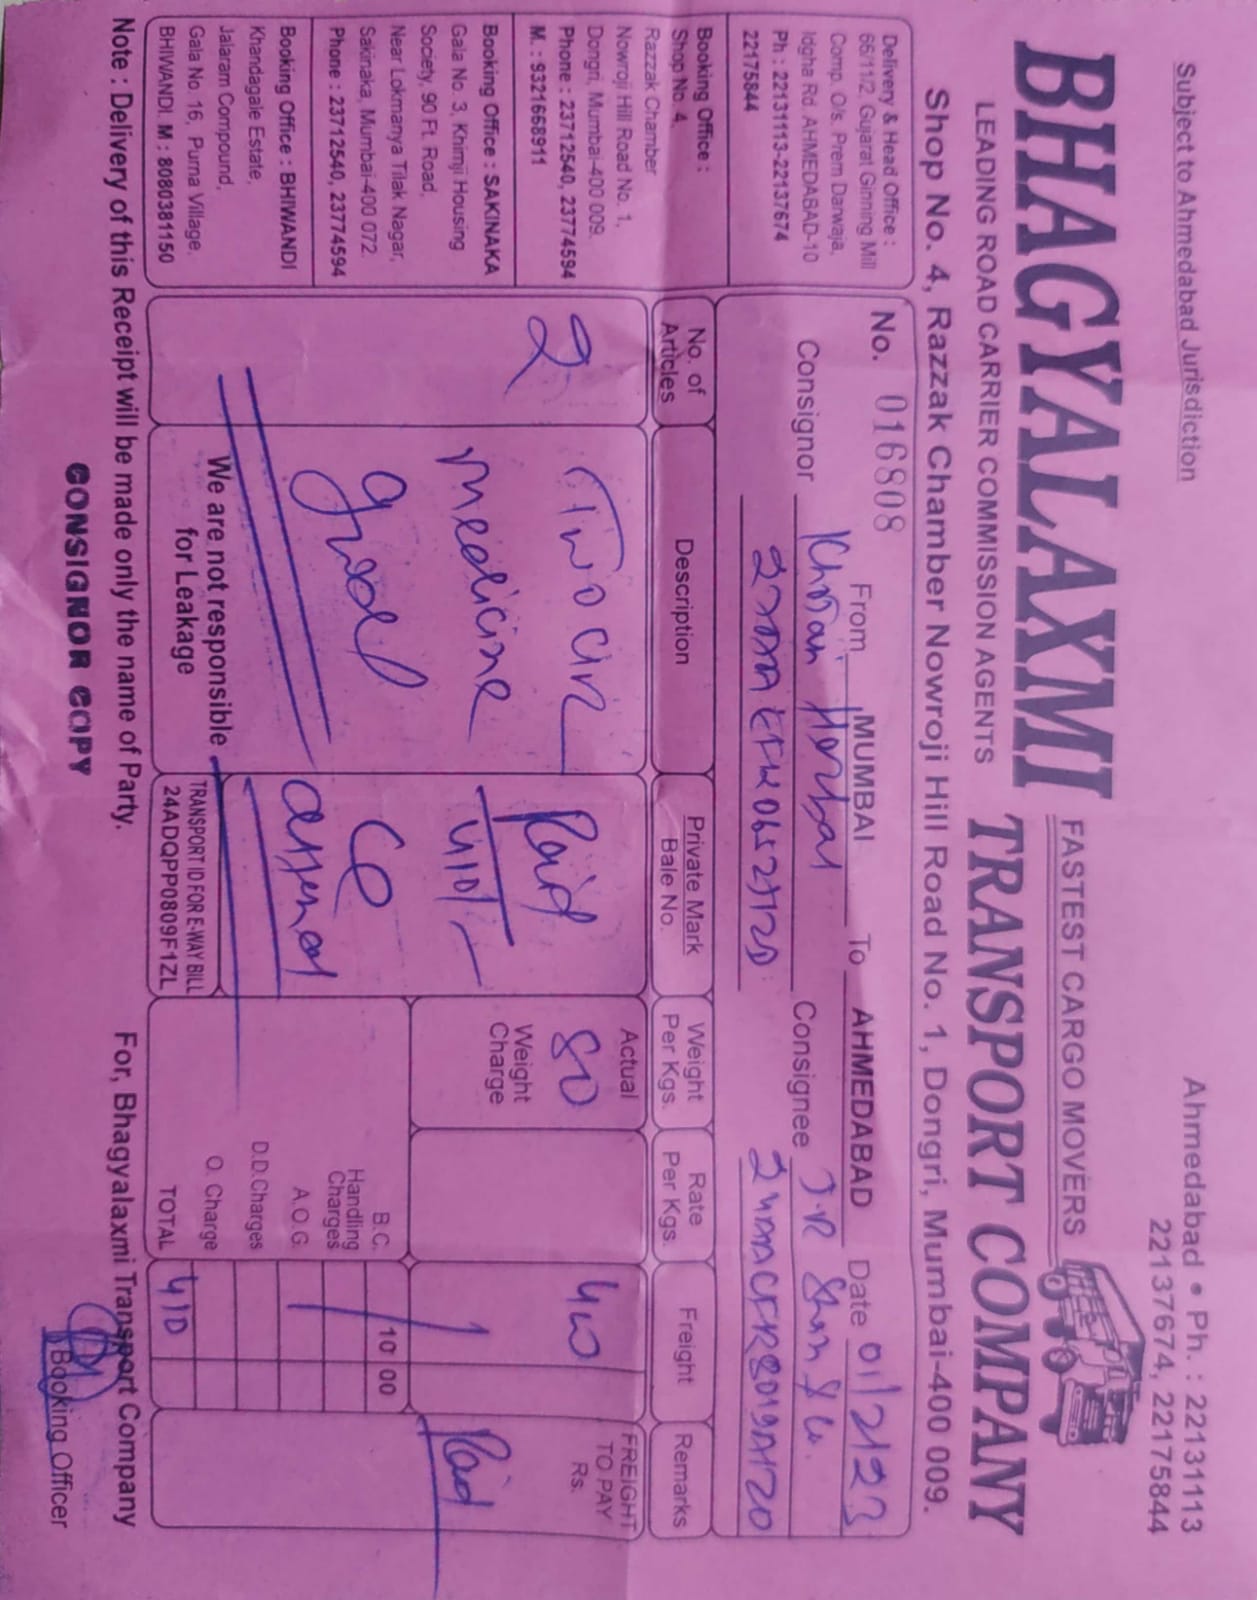 Subject to Ahmedabad Jurisdiction
Ahmedabad • Ph. : 22131113
22137674, 22175844
BHAGYALAXMI
FASTEST CARGO MOVERS
LEADING ROAD CARRIER COMMISSION AGENTS
TRANSPORT COMPANY
Shop No. 4, Razzak Chamber Nowroji Hill Road No. 1, Dongri, Mumbai-400 009.
Delivery & Head Office :
66/11/2, Gujarat Ginning Mill
Comp. O/s. Prem Darwaja,
Idgha Rd. AHMEDABAD-10
Ph : 22131113-22137674
22175844
Booking Office :
Shop No. 4,
Razzak Chamber
Nowroji Hill Road No. 1,
Dongri, Mumbai-400 009.
Phone : 23712540, 23774594
M. : 9321668911
Booking Office : SAKINAKA
Gala No. 3, Khimji Housing
Society, 90 Ft. Road,
Near Lokmanya Tilak Nagar,
Sakinaka, Mumbai-400 072.
Phone : 23712540, 23774594
Booking Office : BHIWANDI
Khandagale Estate,
Jalaram Compound,
Gala No. 16, Purna Village.
BHIWANDI. M : 8080381150
No. 016808 From MUMBAI To AHMEDABAD Date 01/2/23
Consignor Herbal Consignee J.R
No. of Articles
Description
Private Mark
Bale No.
Weight
Per Kgs.
Rate
Per Kgs.
Freight
Remarks
2
Two
medicine
good
Paid
410/-
Actual
80
Weight
Charge
400
FREIGHT
TO PAY
Rs.
Paid
B.C. 10 00
Handling
Charges
A.O.G.
D.D.Charges
O. Charge
TOTAL 410
We are not responsible
for Leakage
TRANSPORT ID FOR E-WAY BILL
24ADQPP0809F1ZL
Note : Delivery of this Receipt will be made only the name of Party.
For, Bhagyalaxmi Transport Company
CONSIGNOR COPY
Booking Officer